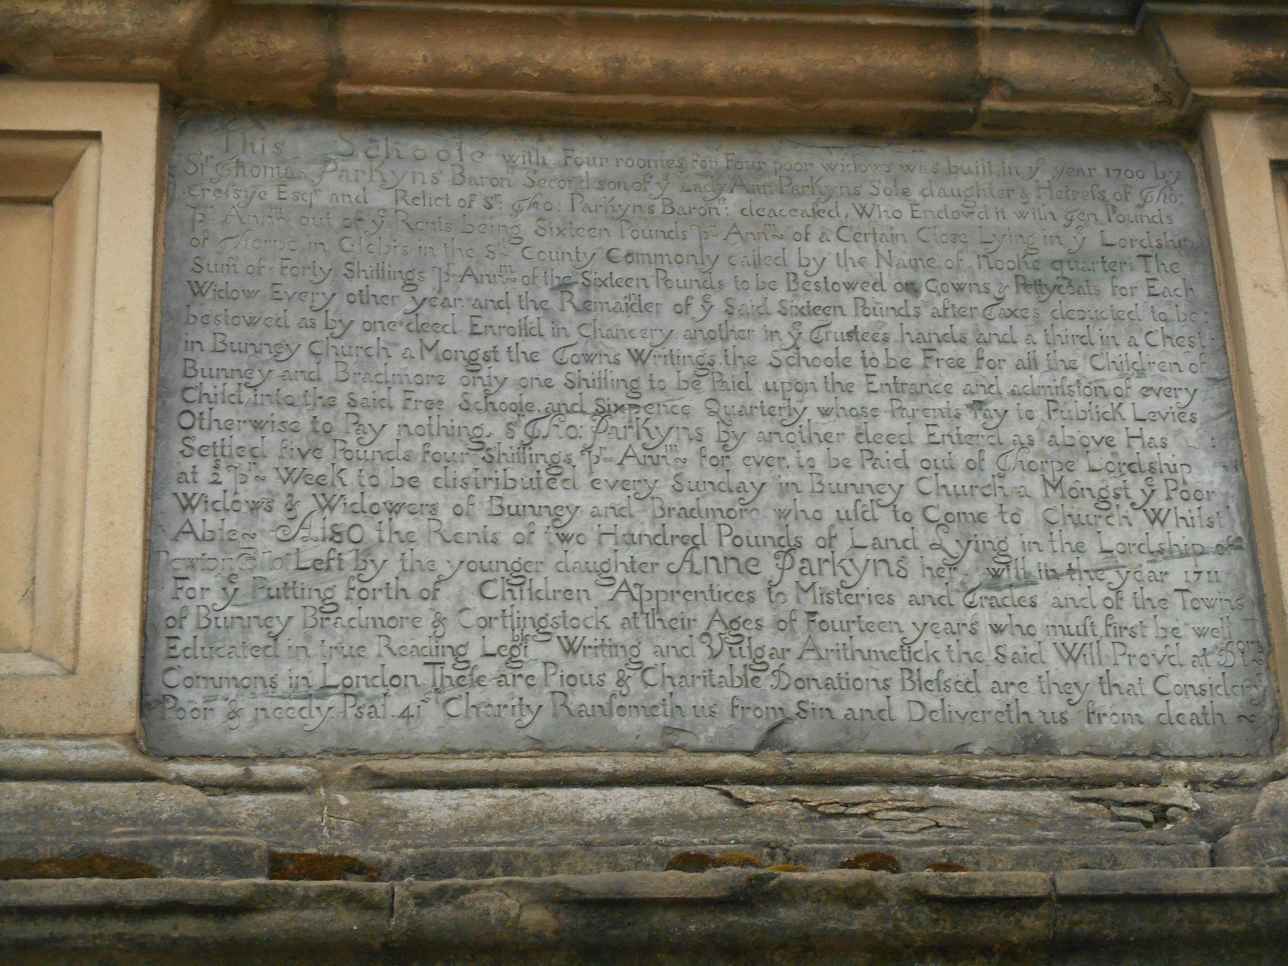 This Schoole with Four roomes for Four poor widows was built in yᵉ year 1700 by
Sʳ Thomas Parkyns Baronᵗ Second son of yᵉ Lady Ann Parkyns Sole daughter & Heiress of Tho:
Cressye Esqʳ and Relict of Sʳ Tho. Parkyns Baronᵗ deaceased, Who Endowd it with Ten Pounds
pʳ Annᵐ out of yᵉ Rents being Sixteen Pounds pʳ Annᵐ of a Certain Close Lying in yᵉ Lordship
of Thorpe in Glebis in the Sᵈ County Commonly called by the Name of Nooke quarter: The
Sum of Forty Shillings pʳ Annᵐ of the Sixteen Pounds to be Bestowed on Gowns & Pettycoats for Each
Widow Every other year, and the Remaider of yᵉ Said Sixteen Pounds after Taxes deducted to be
bestowed as by one deed Enroild in Chancery another in yᵉ Trustees hands and a third in a Chest
in Bunney Church a Mongst the Towns Writings: the Schoole to be Free for all the Children of
Bunney and Bradmore only one Shilling to be Paid upon the Entrance and admission of every
Child into the Said Free Schoole, and Sixpence Quarterly whose Parents Pay to Publick Levies
Otherwise to Pay nothing. Sʳ Tho: Parkyns by another deed Enterd as above Has
Settled five Pounds Four Shillings pʳ Annᵐ for ever, to be Paid out of Thorpe Lordship
at 2ˢ pʳ Week to be distributed every Sunday in Bunney Church a Mongst yᵉ Poor
Widows & Widowers of Bunney and Bradmore, who us'd to Come to Church, Whilst
Able ~ Also the Rents of two Hundred Pounds of Land Lying in the Lordship of
Left by the younger daughter Anne Parkyns her will in the year 1711
For yᵉ Putting forth of yᵉ Children Apprentices to Misteries and Trades and of the Towns
of Bunney Bradmore & Cortlingstock, at their Ages of Fourteen years, who must first be well
Educated in true Reading Legible Writing and Vulgar Arithmetick the Said Will Prov'd at Doctʳˢ
Commons in London These are Pious & Charitable Donations Blessed are they that Consider yᵉ
Poor & needy Psal 41ˢᵗ Charity Ransometh us from Sin and Delivereth us from death ~